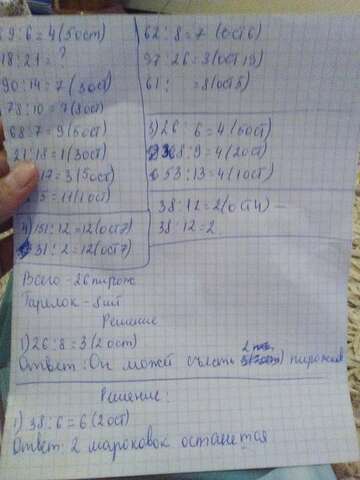 9:6=4(5ост)
18:21= ?
90:14=7(
78:10=7(8ост)
68:7=9(5ост)
21:18=1(3ост)
17=3(5ост)
5=11(1ост)
4) 151:12=12(ост7)
31:2=12(ост7)
62:8=7 (ост6)
97:26=3(ост19)
61: =8(ост5)
3)26: 6=4(
38:9=4(2ост)
53:13=4(1ост)
38:12=2(ост4)
38:12=2
Всего -26 пирож
Тарелок -8шт
Решение
1)26:8=3(2ост)
Ответ: Он может съесть 2 пирожков
Решение:
1) 38:6=6(2ост)
Ответ: 2 марковок остается